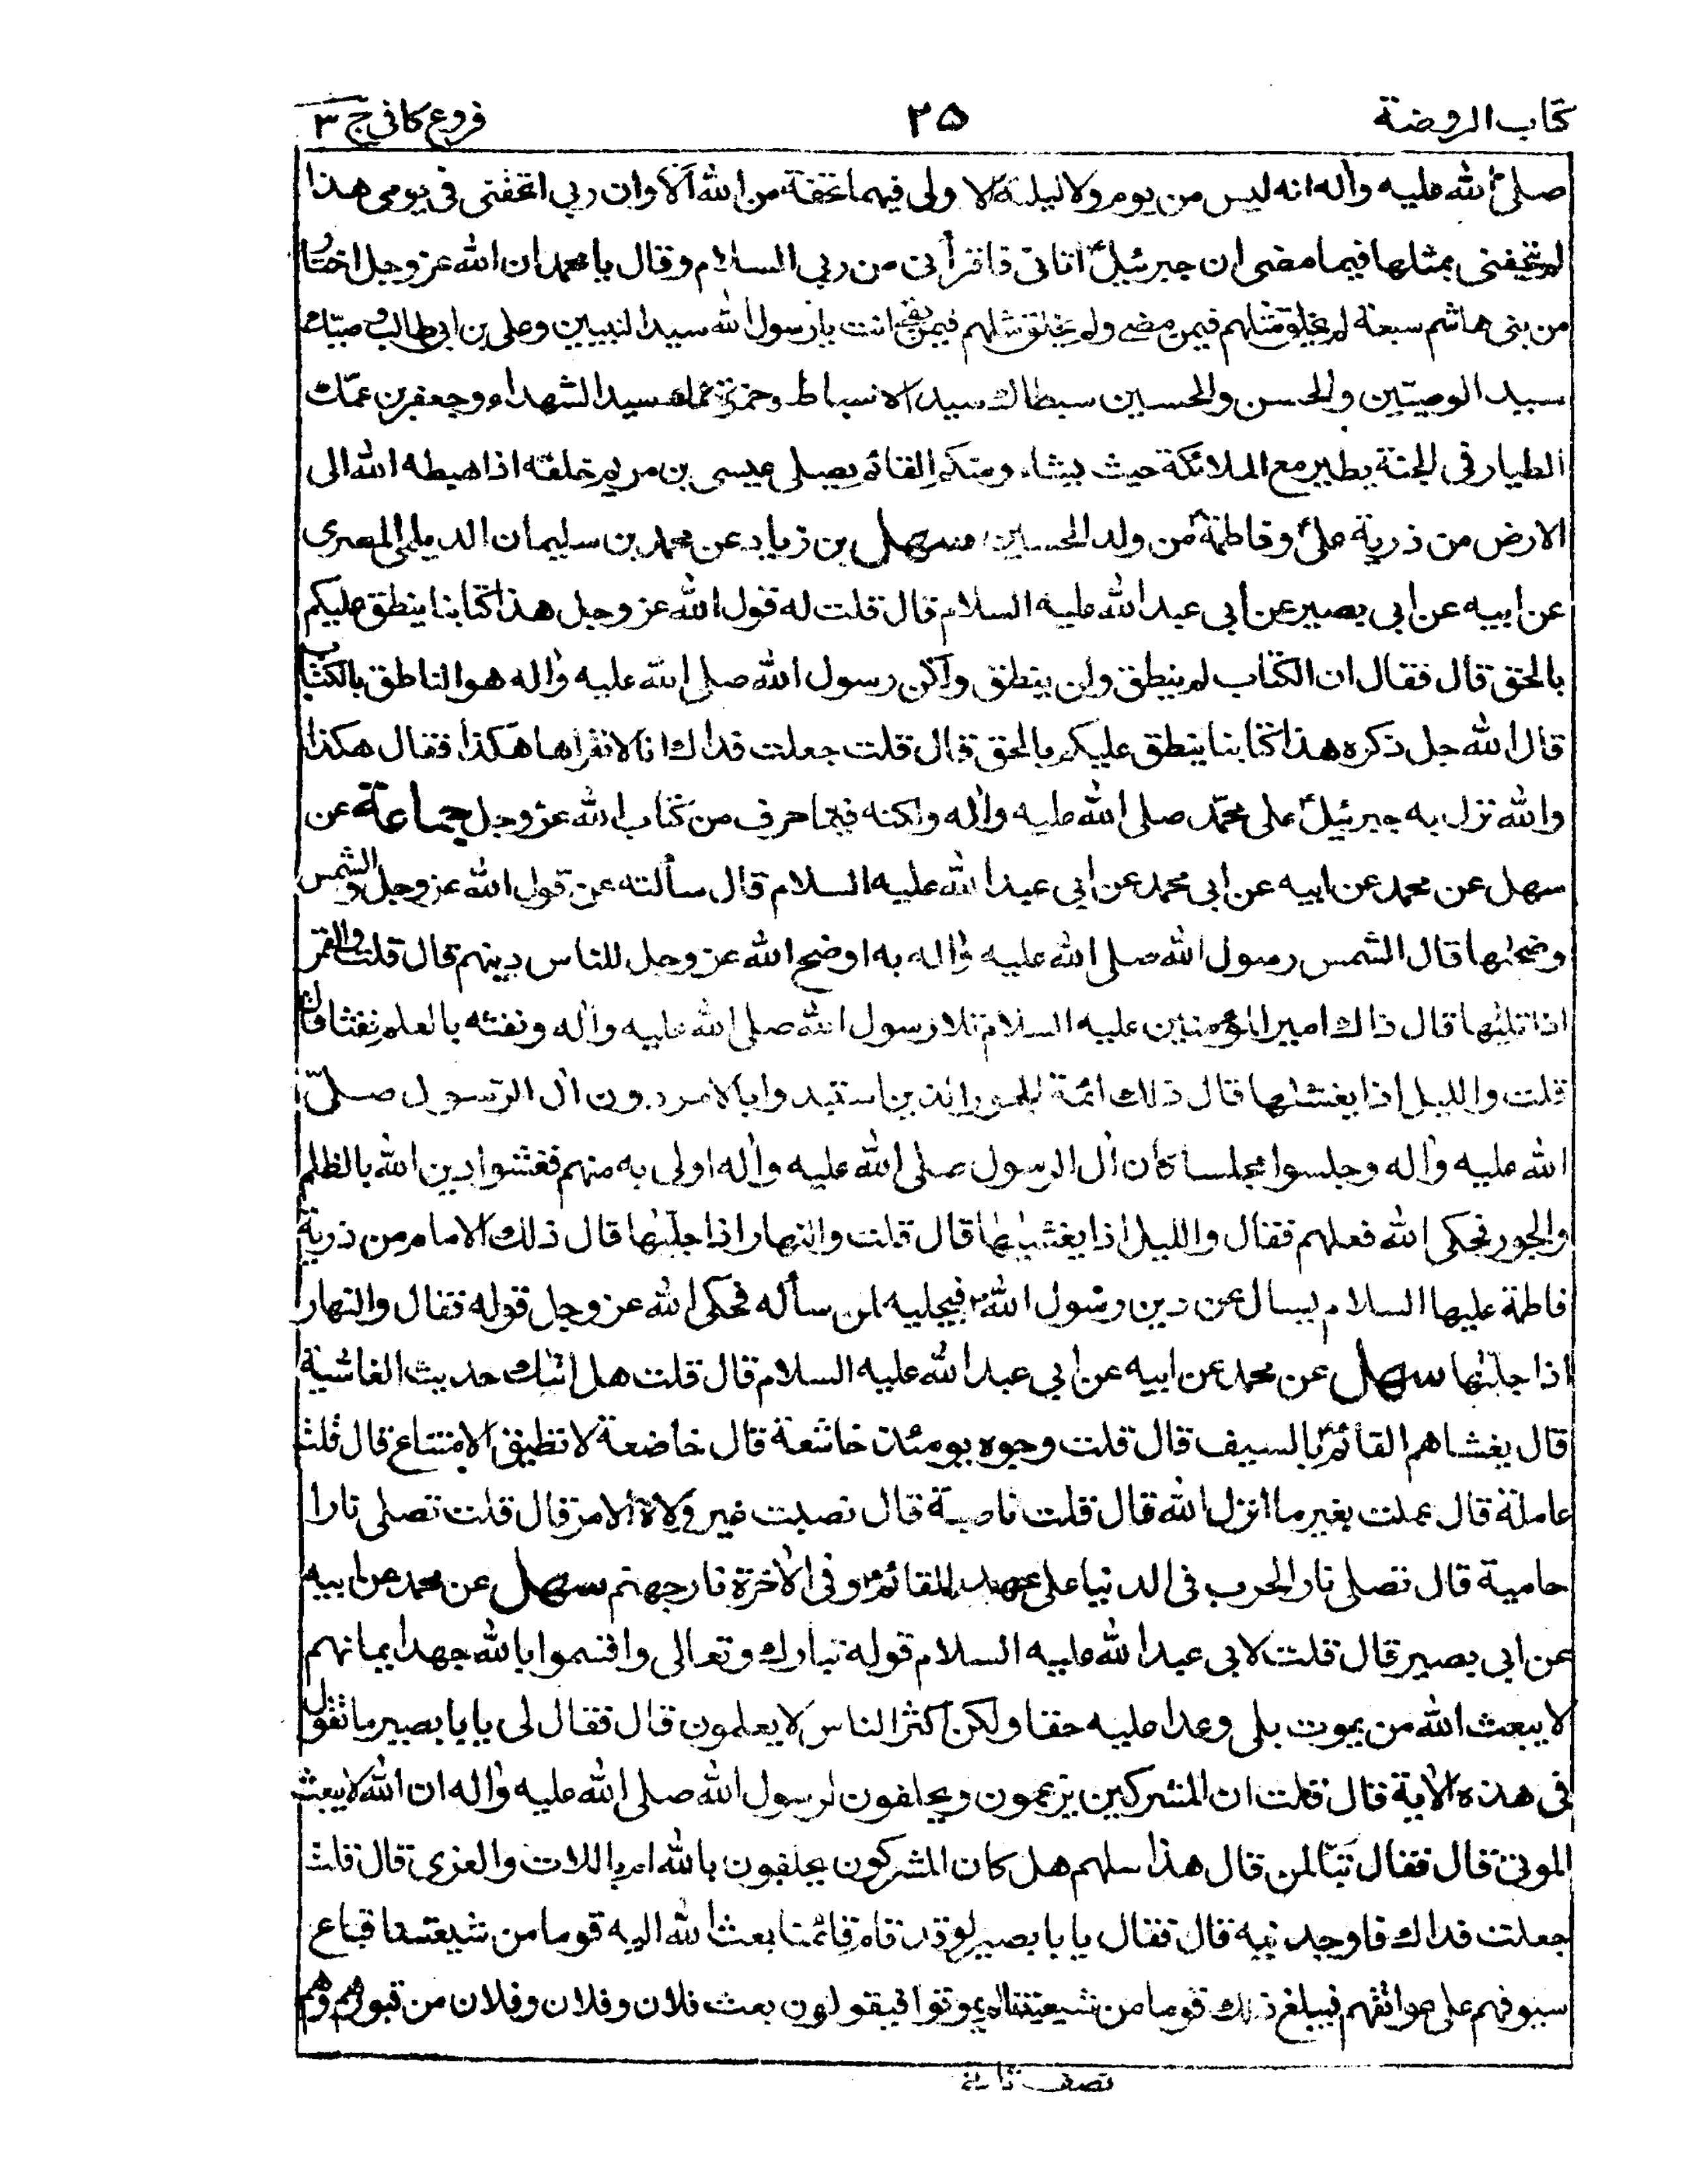 كتاب الروضة ۲۵ فروع كافی ج ۳
صلى الله عليه واله انه ليس من يوم ولا ليلة الا ولى فيهما تحفة من الله ألا وان ربى اتحفنى فى يومى هذا
لم يتحفنى بمثلها فيما مضى ان جبرئيلؑ اتانى فاقرأنى من ربى السلام وقال يا محمد ان الله عز وجل اختار
من بنى هاشم سبعة لم يخلق مثلهم فيمن مضى ولم يخلق مثلهم فيمن بقى انت يا رسول الله سيد النبيين وعلى بن ابى طالب وصيك
سيد الوصيّين والحسن والحسين سبطاك سيد الاسباط وحمزة عمك سيد الشهداء وجعفر بن عمّك
الطيار فى الجنة يطير مع الملائكة حيث يشاء ومنكم القائم يصلى عيسى بن مريم خلفه اذا هبطه الله الى
الارض من ذرية علىؑ وفاطمةؑ من ولد الحسين سهل بن زياد عن محمد بن سليمان الديلمى المصرى
عن ابيه عن ابى بصير عن ابى عبد الله عليه السلام قال قلت له قول الله عز وجل هذا كتابنا ينطق عليكم
بالحق قال فقال ان الكتاب لم ينطق ولن ينطق ولكن رسول الله صلى الله عليه واله هو الناطق بالكتاب
قال الله جل ذكره هذا كتابنا ينطق عليكم بالحق قال قلت جعلت فداك انا لا نقراها هكذا فقال هكذا
والله نزل به جبرئيلؑ على محمّد صلى الله عليه واله ولكنه فيما حرف من كتاب الله عز وجل جماعة عن
سهل عن محمد عن ابيه عن ابى محمد عن ابى عبد الله عليه السلام قال سألته عن قول الله عز وجل والشمس
وضحٰها قال الشمس رسول الله صلى الله عليه واله به اوضح الله عز وجل للناس دينهم قال قلت والقمر
اذا تلٰها قال ذاك امير المؤمنين عليه السلام تلا رسول الله صلى الله عليه واله ونفثه بالعلم نفثا قال
قلت والليل اذا يغشٰها قال ذلك ائمة الجور الذين استبدوا بالامر دون ال الرّسول صلّى
الله عليه واله وجلسوا مجلسا كان ال الرسول صلى الله عليه واله اولى به منهم فغشوا دين الله بالظلم
والجور فحكى الله فعلهم فقال والليل اذا يغشٰها قال قلت والنهار اذا جلّٰها قال ذلك الامام من ذرية
فاطمة عليها السلام يسال عن دين رسول اللهؐ فيجليه لمن سأله فحكى الله عز وجل قوله فقال والنهار
اذا جلّٰها سهل عن محمد عن ابيه عن ابى عبد الله عليه السلام قال قلت هل اتٰك حديث الغاشية
قال يغشاهم القائمؑ بالسيف قال قلت وجوه يومئذ خاشعة قال خاضعة لا تطيق الامتناع قال قلت
عاملة قال عملت بغير ما انزل الله قال قلت ناصبة قال نصبت غير ولاة الامر قال قلت تصلى نارا
حامية قال تصلى نار الحرب فى الدنيا على عهد القائمؑ وفى الأخرة نار جهنم سهل عن محمد عن ابيه
عن ابى بصير قال قلت لابى عبد الله عليه السلام قوله تبارك وتعالى واقسموا بالله جهد ايمانهم
لا يبعث الله من يموت بلى وعدا عليه حقا ولكن اكثر الناس لا يعلمون قال فقال لى يا با بصير ما تقول
فى هذه الأية قال قلت ان المشركين يزعمون ويحلفون لرسول الله صلى الله عليه واله ان الله لا يبعث
الموتى قال فقال تبّا لمن قال هذا سلهم هل كان المشركون يحلفون بالله ام باللات والعزى قال قلت
جعلت فداك فاوجدنيه قال فقال يا با بصير لو قد قام قائمنا بعث الله اليه قوما من شيعتنا قباع
سيوفهم على عواتقهم فيبلغ ذلك قوما من شيعتنا لم يموتوا فيقولون بعث فلان وفلان وفلان من قبورهم وهم
نصف ثانى